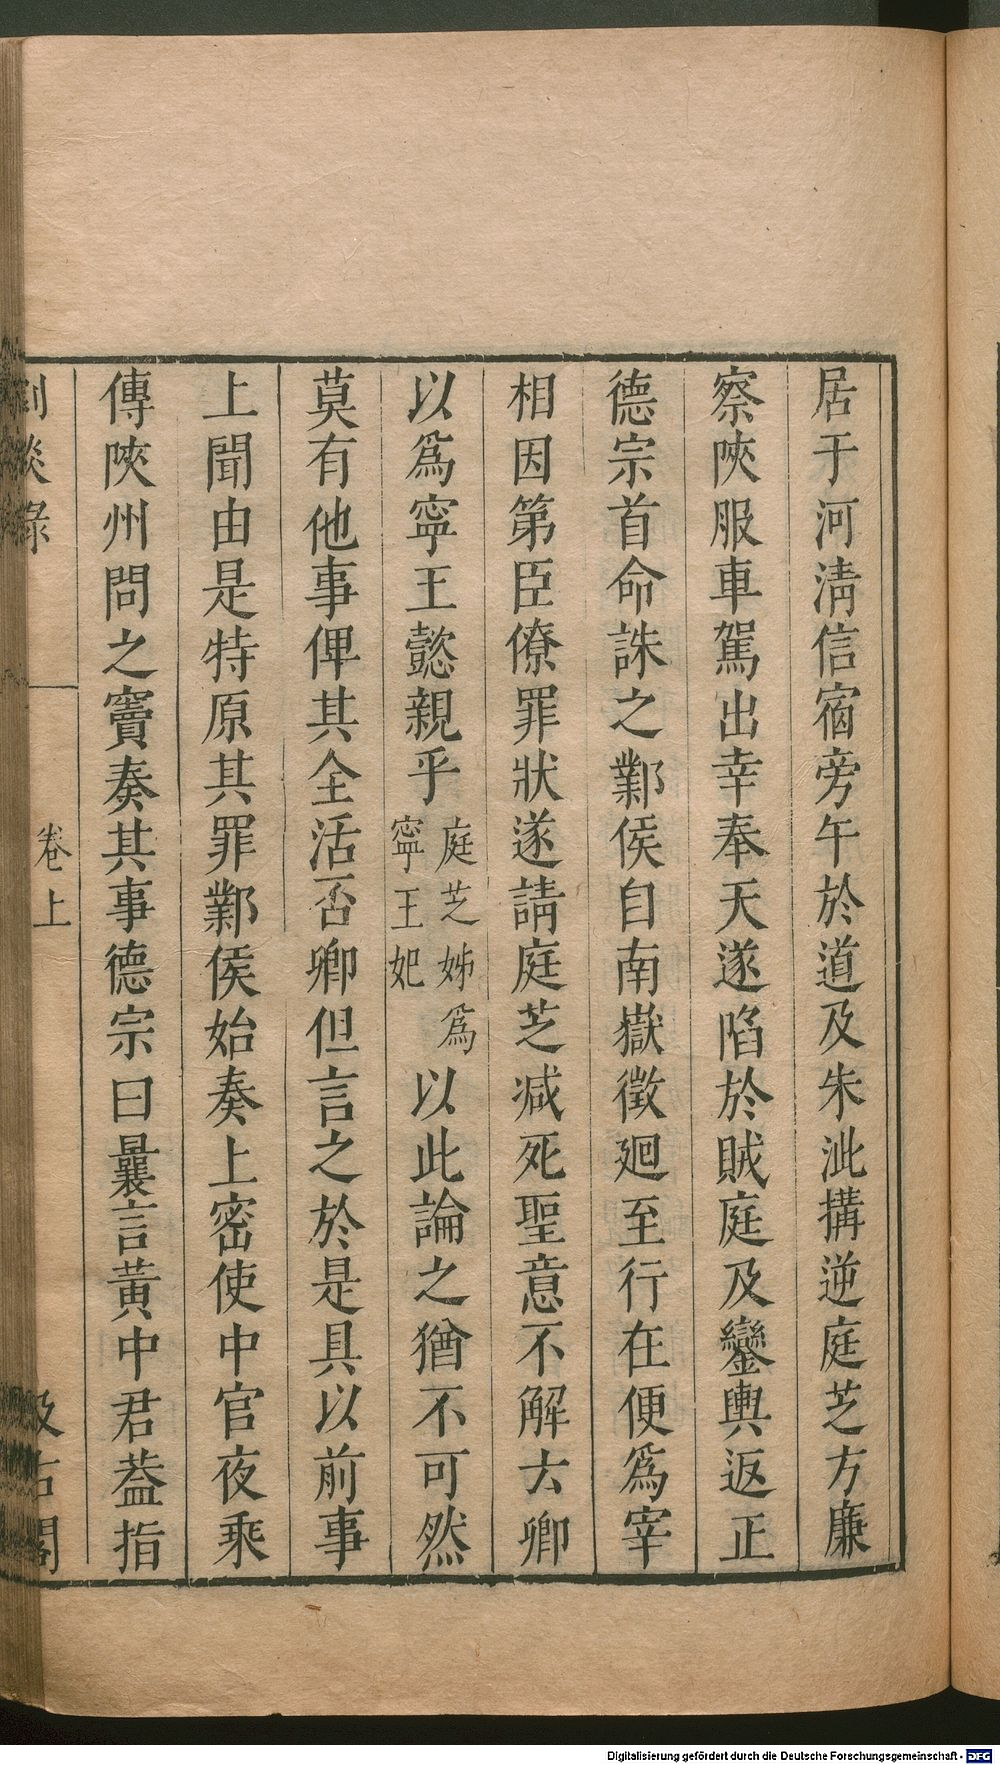 居于河淸信宿旁午於道及朱泚搆逆庭芝方廉
察陝服車駕出幸奉天遂陷於賊庭及鑾輿返正
德宗首命誅之鄴侯自南嶽徵廻至行在便爲宰
相因第臣僚罪狀遂請庭芝减死聖意不解云卿
以爲寧王懿親乎庭芝姊爲寧王妃以此論之猶不可然
莫有他事俾其全活否卿但言之於是具以前事
上聞由是特原其罪鄴侯始奏上密使中官夜乘
傳陝州問之竇奏其事德宗曰曩言黃中君葢指
劇談錄 卷上 汲古閣
Digitalisierung gefördert durch die Deutsche Forschungsgemeinschaft - DFG